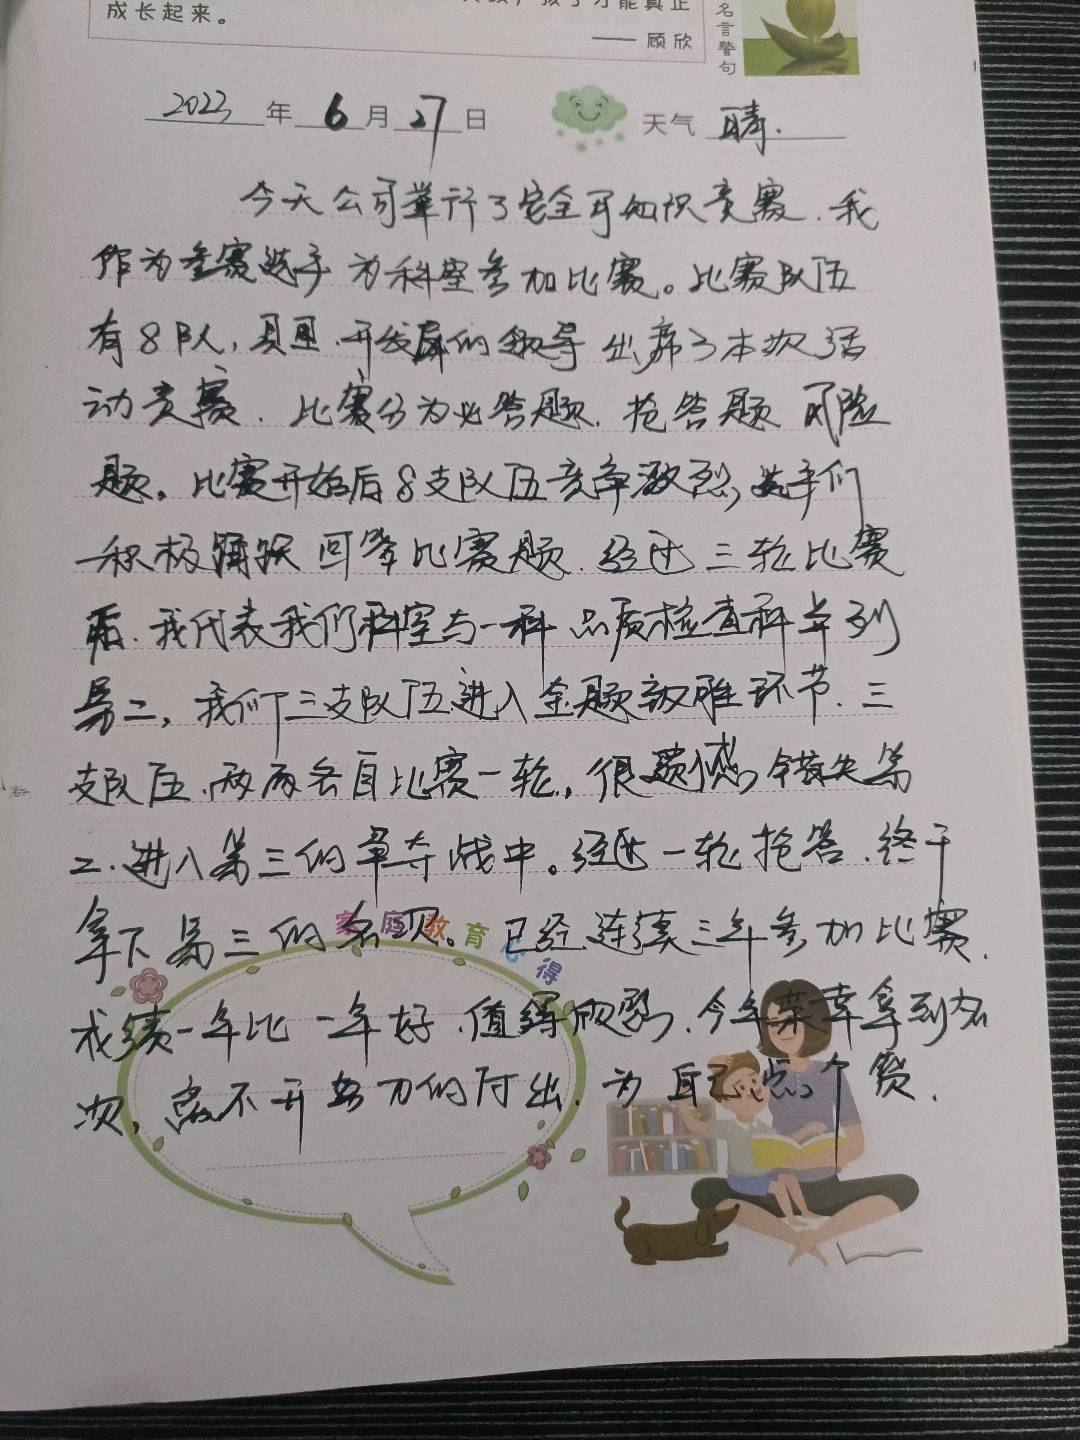 成长起来。
孩子才能真正
—— 顾欣
名言警句
2023年6月27日 天气 晴.
今天公司举行了安全知识竞赛.我
作为参赛选手为科室参加比赛。比赛队伍
有8队,县里.开发的领导出席了本次活
动竞赛.比赛分为必答题.抢答题 风险
题。比赛开始后8支队伍竞争激烈,选手们
积极踊跃回答比赛题.经过三轮比赛
后.我代表我们科室与一科 品质检查科并列
第二,我们三支队伍进入全题环节.三
支队伍.两两各自比赛一轮,很遗憾错失第
二.进入第三的争夺战中。经过一轮抢答.终于
拿下第三的名次。已经连续三年参加比赛.
成绩一年比一年好.值得鼓励.今年荣幸拿到名
次,离不开努力的付出.为自己点个赞.
家庭教育心得